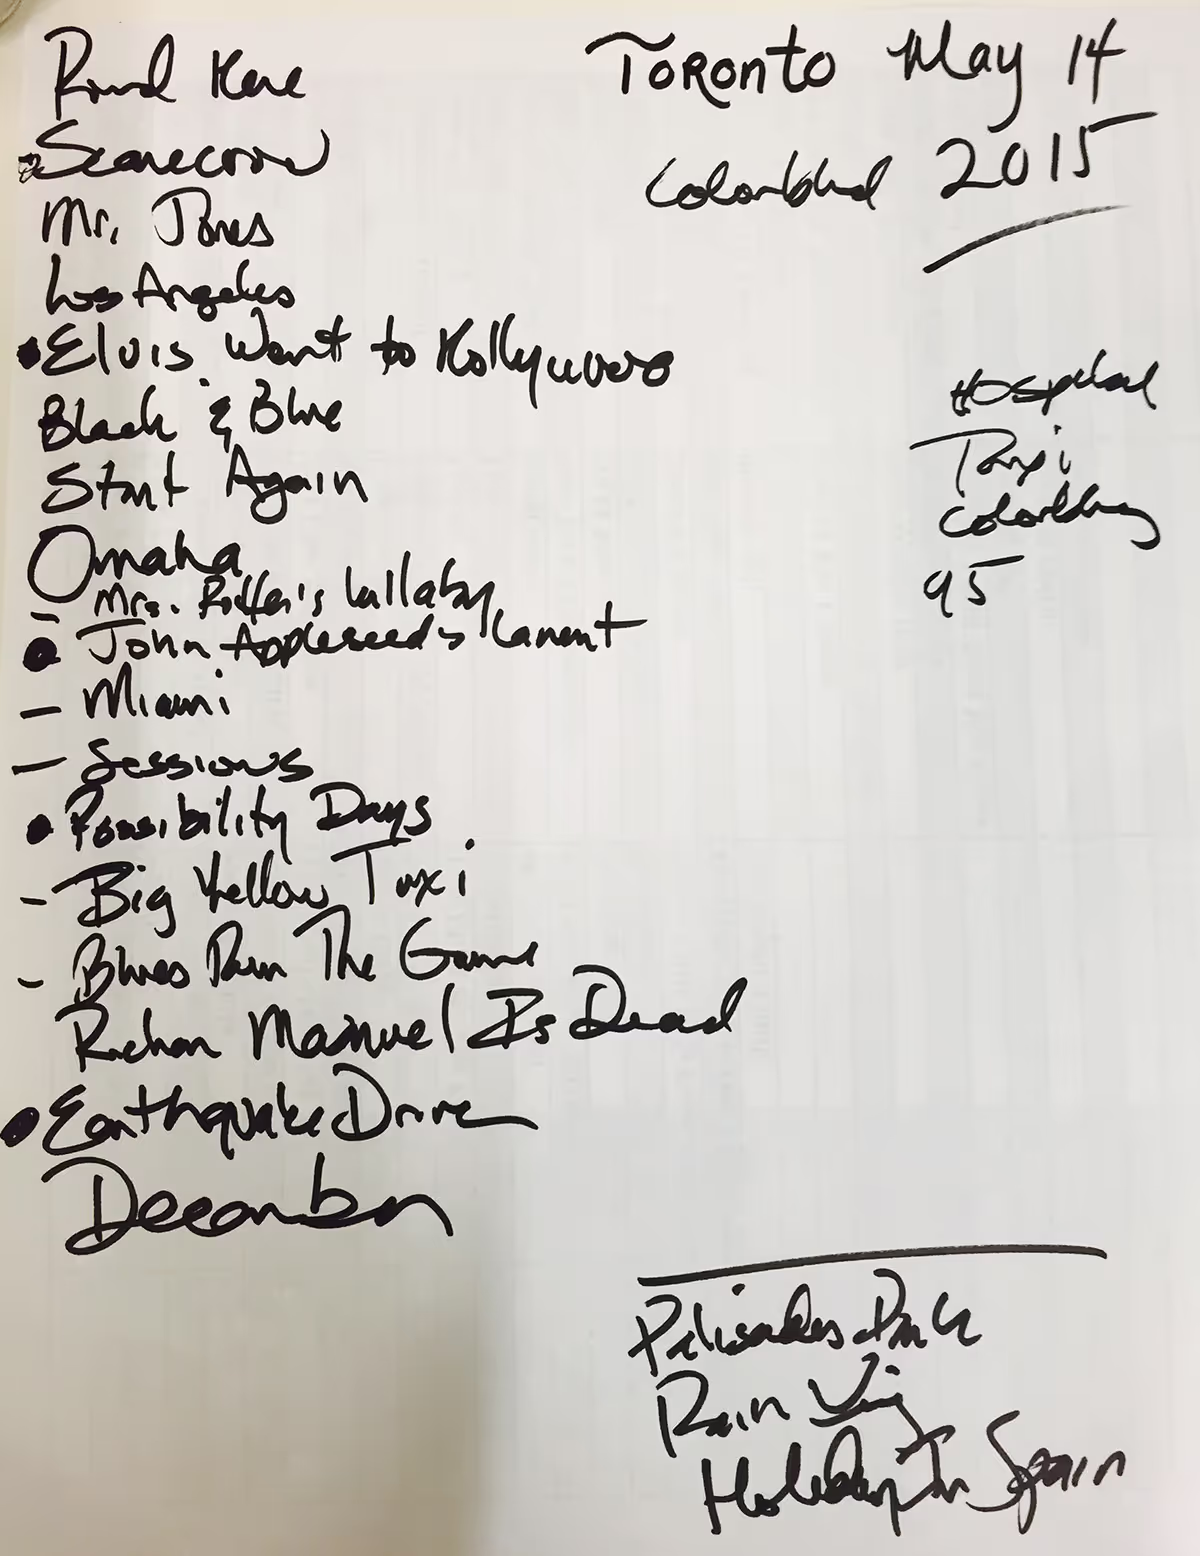 Round Here
Scarecrow
Mr. Jones
Los Angeles
Elvis Went to Hollywood
Black & Blue
Start Again
Omaha
- Mrs. Potter's Lullaby
John Appleseed's Lament
- Miami
- Sessions
Possibility Days
- Big Yellow Taxi
- Blues Run The Game
Richard Manuel Is Dead
Earthquake Driver
December
Toronto May 14
Colorblind 2015
Hospital
Taxi
95
Palisades Park
Rain King
Holiday In Spain